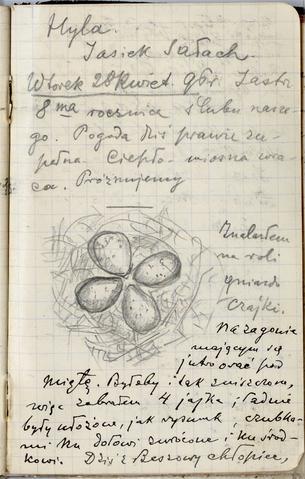 Hyla.
Jasiek Sałach.
Wtorek 28 Kwiet. 96r. Jastrz
8ma rocznica ślubu nasze-
go. Pogoda dziś prawie zu-
pełna. Ciepło - wiosna wra-
ca. Próżnujemy
Znalazłem
na roli
gniazdo
czajki.
Na zagonie
mającym się
jutro orać pod
mięszę. Byłoby i tak zniszczone,
więc zabrałem 4 jajka, ładnie
były ułożone, jak rysunek, czubka-
mi ku dołowi zwrócone i ku środ-
kowi. Dziś z Beszowy chłopice,